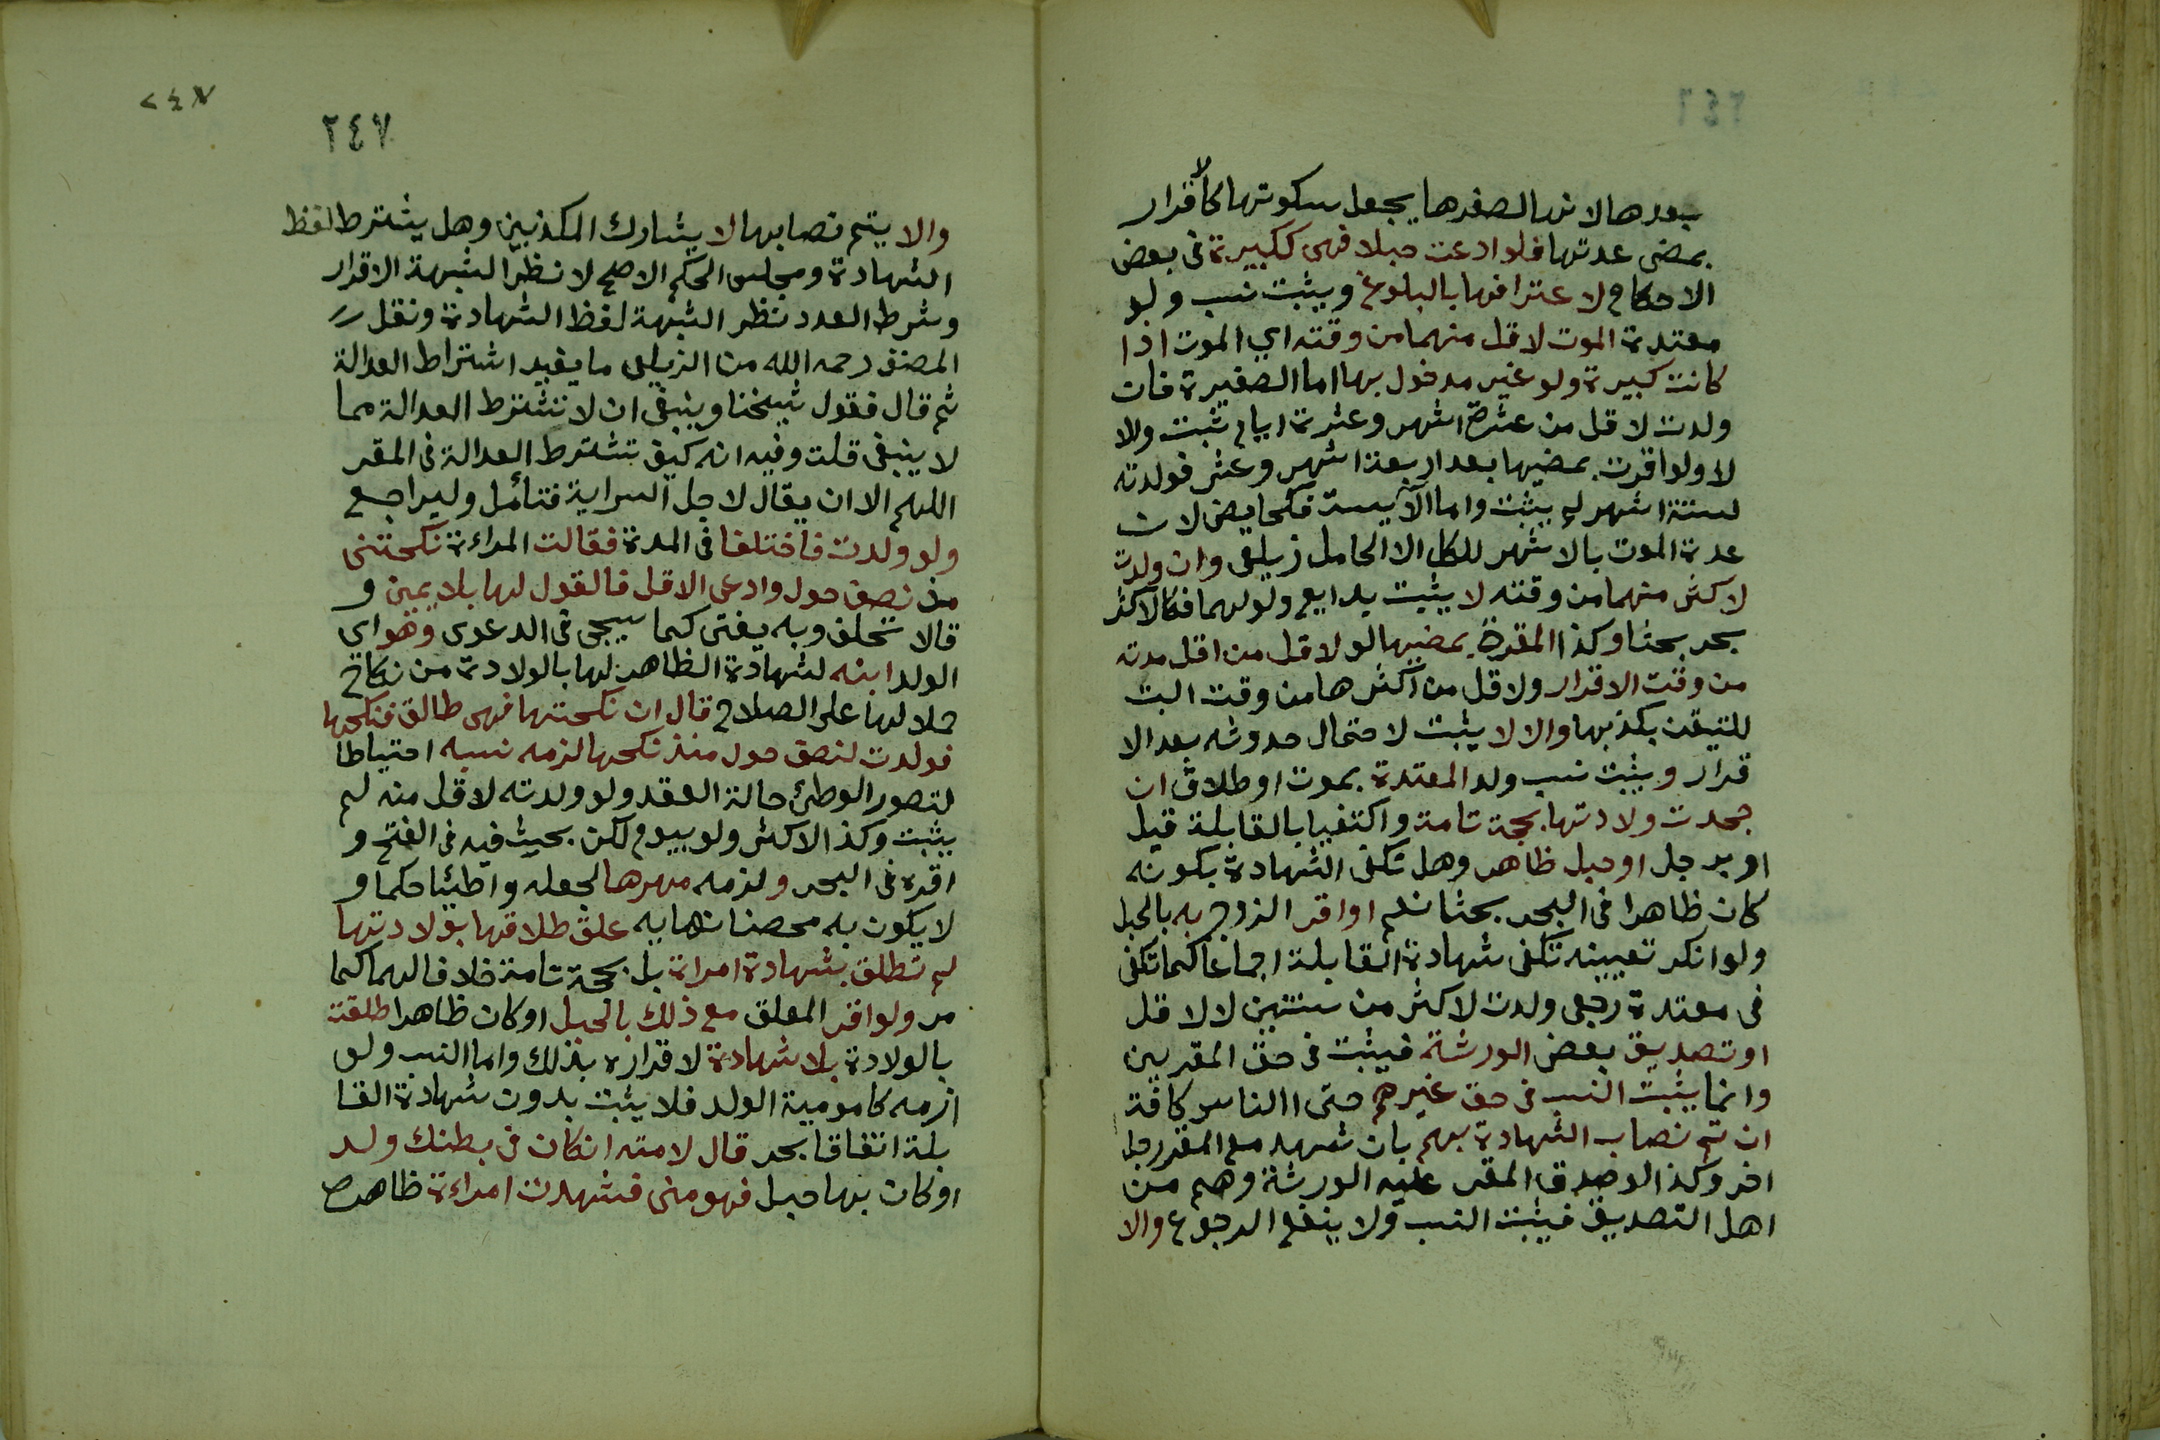 بعدها لانها لصغرها يجعل سكوتها كالاقرار
بمضى عدتها فلو ادعت حبلا فهى ككبيرة فى بعض
الاحكام لاعترافها بالبلوغ ويثبت نسب ولو
معتدة الموت لاقل منهما من وقته اي الموت اذا
كانت كبيرة ولو غير مدخول بها اما الصغيرة فان
ولدت لاقل من عشرة اشهر وعشرة ايام ثبت والا
لا ولو اقرت بمضيها بعد اربعة اشهر وعشر فولدته
لستة اشهر لم يثبت واما الآيسة فكحايض لان
عدة الموت بالاشهر للكل الا الحامل زيلعى وان ولدت
لاكثر منهما من وقته لا يثبت بدايع ولو لهما فكالاكثر
بحر بحثا وكذا المقرة بمضيها لو لاقل من اقل مدته
من وقت الاقرار ولاقل من اكثرها من وقت البت
للتيقن بكذبها والا لا يثبت لاحتمال حدوثه بعد الا
قرار ويثبت نسب ولد المعتدة بموت او طلاق ان
جحدت ولادتها بحجة تامة واكتفيا بالقابلة قيل
او برجل او حبل ظاهر وهل تكفى الشهادة بكونه
كان ظاهرا فى البحر بحثا نعم او اقر الزوج به بالحبل
ولو انكر تعيينه تكفى شهادة القابلة اجماعا كما تكفى
فى معتدة رجعى ولدت لاكثر من سنتين لا لاقل
او تصديق بعض الورثة فيثبت فى حق المقرين
وانما يثبت النسب فى حق غيرهم حتى االناس كافة
ان تم نصاب الشهادة بهم بان شهد مع المقر رجل
اخر وكذا لو صدق المقر عليه الورثة وهم من
اهل التصديق فيثبت النسب ولا ينفع الرجوع والا
٢٤٧
٢٤٧
والا يتم نصابها لا يشارك المكذبين وهل يشترط لفظ
الشهادة ومجلس الحكم الاصح لا نظرا لشبهة الاقرار
وشرط العدد نظر الشبهة لفظ الشهادة ونقل
المصنف رحمه الله من الزيلعى ما يفيد اشتراط العدالة
ثم قال فقول شيخنا وينبغى ان لا تشترط العدالة مما
لا ينبغى قلت وفيه انه كيف تشترط العدالة فى المقر
اللهم الا ان يقال لاجل السراية فتائمل وليراجع
ولو ولدت فاختلفا فى المدة فقالت المراءة نكحتنى
من نصف حول وادعى الاقل فالقول لها بلا يمين و
قالا تحلف وبه يفتى كما سيجى فى الدعوى وهو اى
الولد ابنه لشهادة الظاهر لها بالولادة من نكاح
حملا لها على الصلاح قال ان نكحتها فهى طالق فنكحها
فولدت لنصف حول منذ نكحها لزمه نسبه احتياطا
لتصور الوطئ حالة العقد ولو ولدته لاقل منه لم
يثبت وكذا الاكثر ولو بيوم لكن بحيث فيه فى الفتح و
اقره فى البحر ولزمه مهرها لجعله واطئا حكما و
لا يكون به محصنا نهايه علق طلاقها بولادتها
لم تطلق بشهادة امراة بل بحجة تامة خلافا لهما كما
مر ولو اقر المعلق مع ذلك بالحبل او كان ظاهرا طلقت
بالولادة بلا شهادة لاقراره بذلك واما النسب ولو
ازمه كامومية الولد فلا يثبت بدون شهادة القا
بلة اتفاقا بحر قال لامته ان كان فى بطنك ولد
او كان بها حبل فهو منى فشهدت امراءة ظاهره